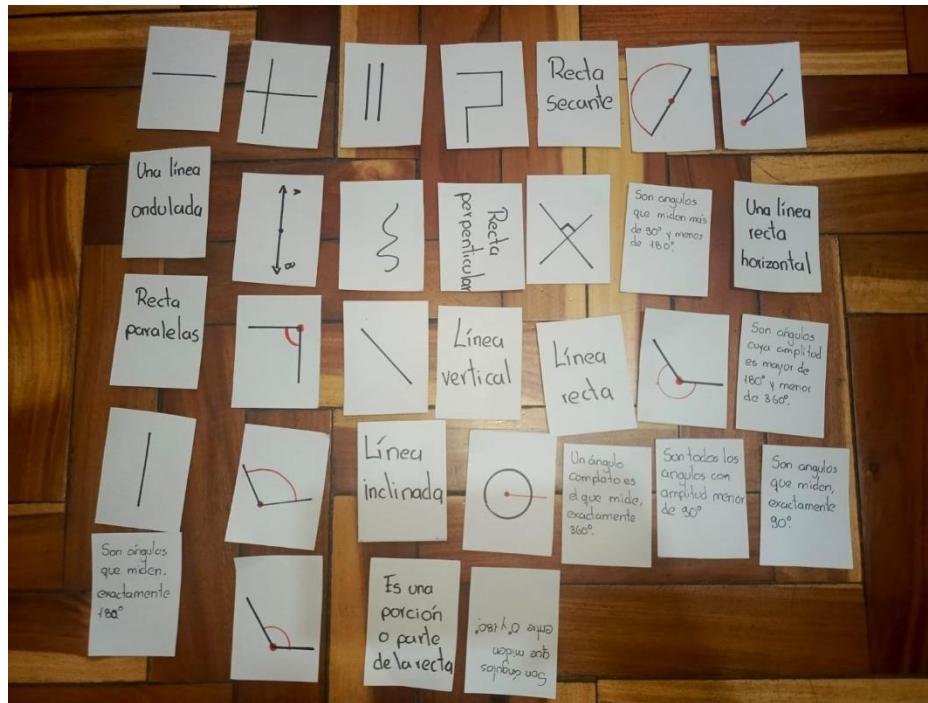 Recta
secante
Una línea
ondulada
A
B
Recta
perpenticular
Son angulos
que miden más
de 90° y menos
de 180°.
Una línea
recta
horizontal
Recta
paralelas
Línea
vertical
Línea
recta
Son ángulos
cuya amplitud
es mayor de
180° y menor
de 360°.
Línea
inclinada
Un ángulo
completo es
el que mide,
exactamente
360°.
Son todos los
angulos con
amplitud menor
de 90°
Son angulos
que miden,
exactamente
90°.
Son ángulos
que miden.
exactamente
180°
Es una
porción
o parte
de la recta
Son ángulos
que miden
entre 0° y 180°.